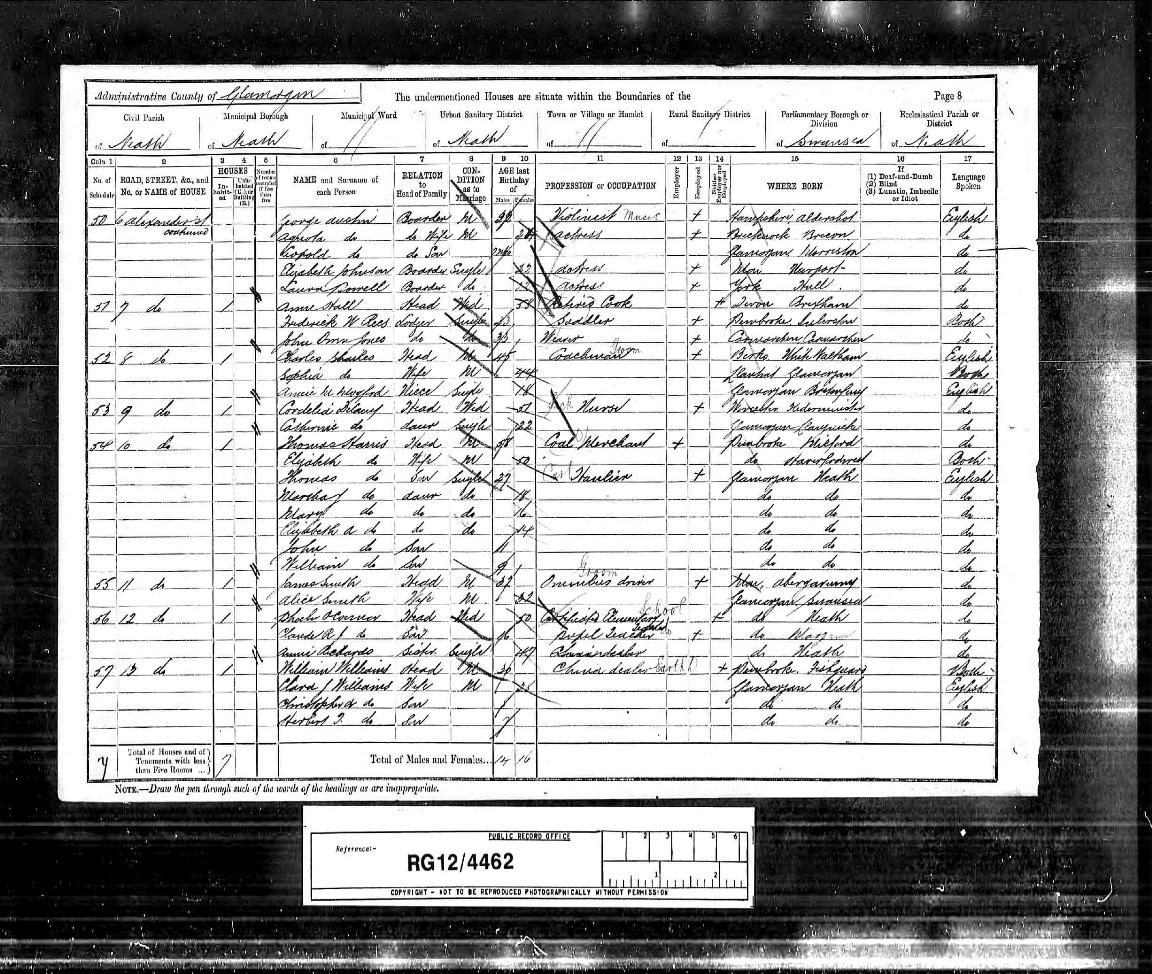 Administrative County of Glamorgan The undermentioned Houses are situate within the Boundaries of the Page 8
Civil Parish Municipal Borough Municipal Ward Urban Sanitary District Town or Village or Hamlet Rural Sanitary District Parliamentary Borough or Division Ecclesiastical Parish or District
of Neath of Neath of of Neath of of of Swansea of Neath
Cols. 1 2 3 4 5 6 7 8 9 10 11 12 13 14 15 16 17
No. of Schedule ROAD, STREET, &c., and No. or NAME of HOUSE HOUSES In-habit-ed NAME and Surname of each Person RELATION to Head of Family CON-DITION as to Marriage AGE last Birthday of Males Females PROFESSION or OCCUPATION Employer Employed WHERE BORN If (1) Deaf-and-Dumb (2) Blind (3) Lunatic, Imbecile or Idiot Language Spoken
50 6 Alexander St George Austin Boarder M 32 Violinist Music + Hampshire Aldershot English
continued do do Wife M Actress + Brecknock Brecon do
Leopold do do Son Glamorgan Morriston do
Elizabeth Johnson Boarder Single 22 Actress + Mon Newport do
Laura Powell Boarder do Actress + York Hull do
51 7 do 1 Anne Hall Head Wid 58 Retired Cook + Devon Brixham do
Frederick W Rees Lodger Single Saddler + Pembroke Both
John Jones do do 35 Weaver + Carmarthen Carmarthen do
52 8 do 1 Charles Head M 45 Coachman Groom + Berks White Waltham English
Sophia do Wife M 44 Glamorgan Both
Annie M Niece Single 18 Glamorgan English
53 9 do 1 Cordelia Head Wid 51 Nurse + Kidderminster do
Catherine do daur Single 22 Glamorgan do
54 10 do 1 Thomas Harris Head M 58 Coal Merchant + Pembroke Milford do
Elizabeth do Wife M 50 do Haverfordwest Both
Thomas do Son Single 27 Haulier + Glamorgan Neath English
Martha J do daur do 18 do do do
Mary do do do 16 do do do
Elizabeth A do do do 14 do do do
John do Son 11 do do do
William do Son 9 do do do
55 11 do 1 James Smith Head M 32 Omnibus driver Groom + Mon Abergavenny do
Alice Smith Wife M 32 Glamorgan Swansea do
56 12 do 1 O'Connor Head Wid 50 Certificated Elementary School Teacher + do Neath do
do Son 16 Pupil Teacher + do do
Annie Richards Sister Single 47 do Neath do
57 13 do 1 William Williams Head M 30 China dealer + Pembroke Fishguard Both
Clara J Williams Wife M Glamorgan Neath English
Christopher do Son do do do
Herbert T. do Son 7 do do do
7 Total of Houses and of Tenements with less than Five Rooms ... 7 Total of Males and Females... 14 16
NOTE.—Draw the pen through such of the words of the headings as are inappropriate.
PUBLIC RECORD OFFICE 1 2 3 4 5 6
Reference:-
RG12/4462
1 2
COPYRIGHT - NOT TO BE REPRODUCED PHOTOGRAPHICALLY WITHOUT PERMISSION